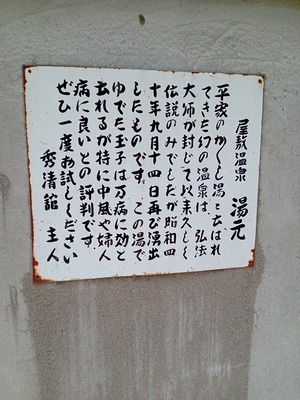 屋敷温泉　湯元
平家のかくし湯と云はれ
てきた幻の温泉は、弘法
大師が封じて以来久しく
伝説のみでしたが昭和四
十年九月十四日再び湧出
したものです。この湯で
ゆでた玉子は万病に効と
云れるが特に中風や婦人
病に良いとの評判です。
ぜひ一度お試しください
秀清館　主人